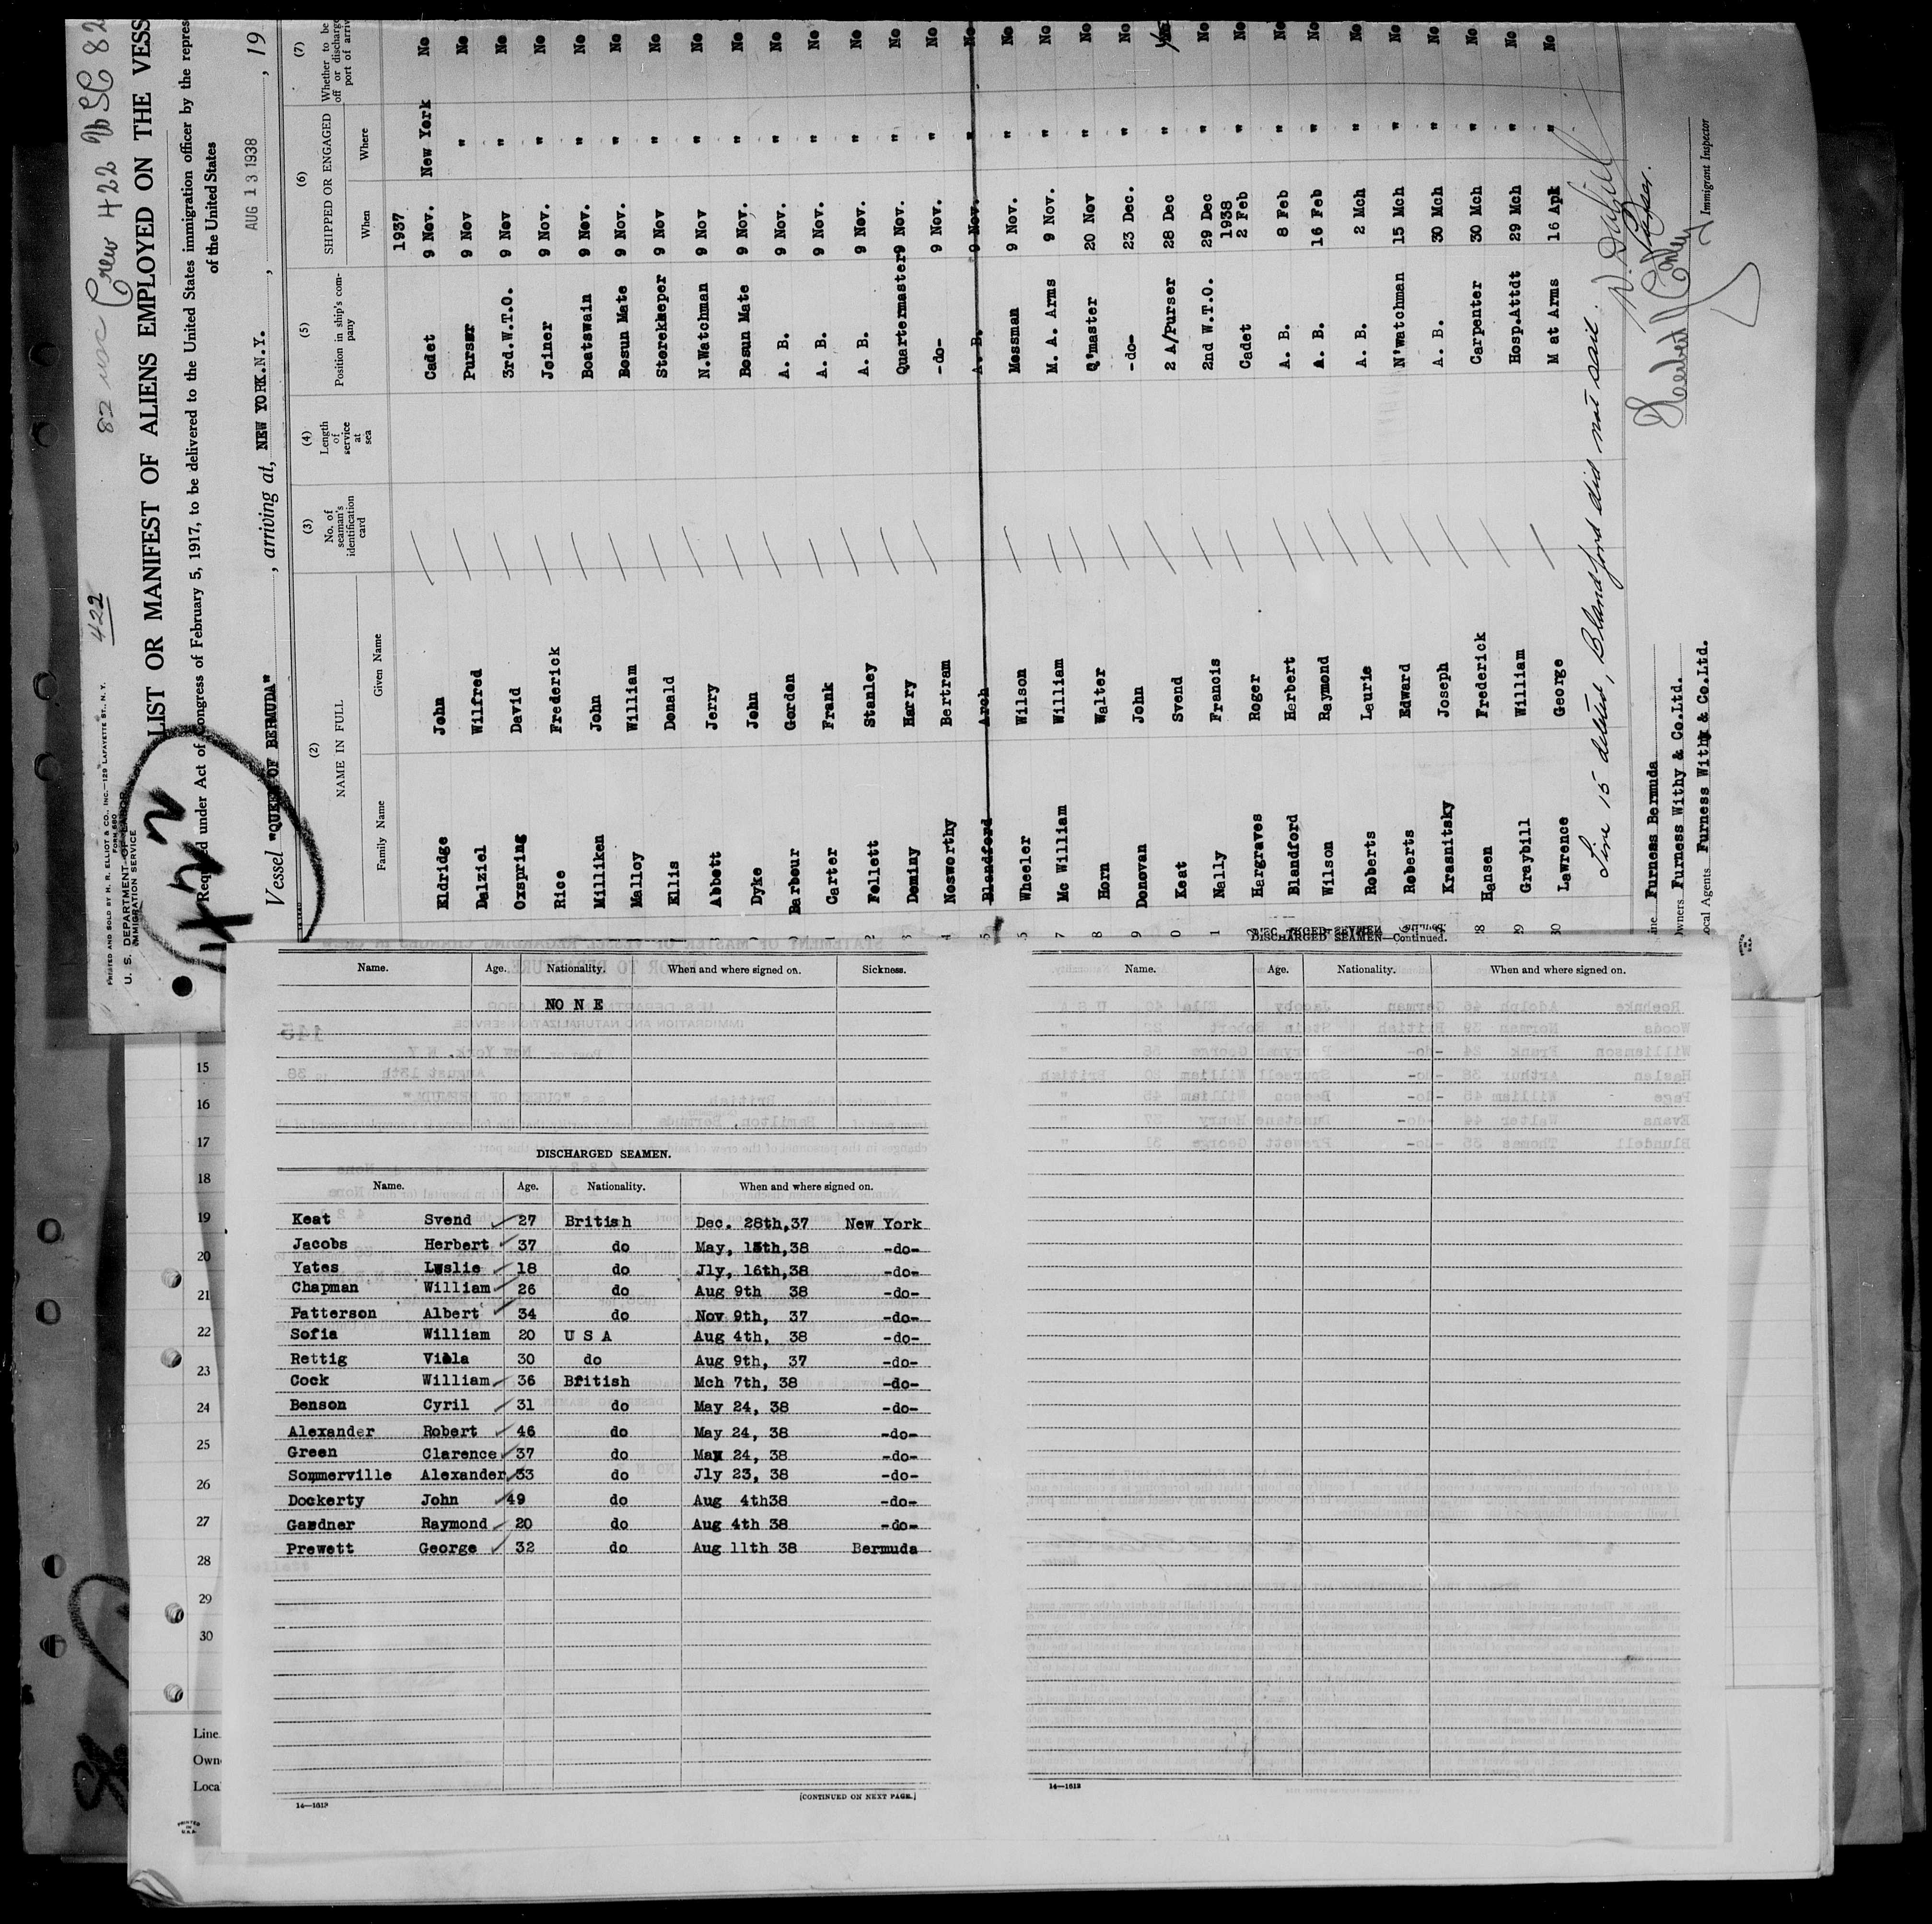 82 usc Crew 422 USC 82
422
PRINTED AND SOLD BY H. R. ELLIOT & CO., INC.—129 LAFAYETTE ST., N. Y.
FORM 680
U. S. DEPARTMENT OF LABOR
IMMIGRATION SERVICE
LIST OR MANIFEST OF ALIENS EMPLOYED ON THE VESS
Required under Act of Congress of February 5, 1917, to be delivered to the United States immigration officer by the repres
of the United States
Vessel "QUEEN OF BERMUDA", arriving at, NEW YORK.N.Y., AUG 13 1938, 19
(2) (3) (4) (5) (6) (7)
NAME IN FULL No. of seaman's identification card Length of service at sea Position in ship's company SHIPPED OR ENGAGED Whether to be off or discharge port of arriv
Family Name Given Name When Where
1937
Eldridge John Cadet 9 Nov. New York No
Dalziel Wilfred Purser 9 Nov " No
Oxspring David 3rd.W.T.O. 9 Nov " No
Rice Frederick Joiner 9 Nov. " No
Milliken John Boatswain 9 Nov. " No
Malloy William Bosun Mate 9 Nov. " No
Ellis Donald Storekeeper 9 Nov " No
Abbett Jerry N.Watchman 9 Nov " No
Dyke John Bosun Mate 9 Nov. " No
Barbour Gordon A. B. 9 Nov. " No
Carter Frank A. B. 9 Nov. " No
Follett Stanley A. B. 9 Nov. " No
Deminy Harry Quartermaster 9 Nov. " No
Nosworthy Bertram -do- 9 Nov. " No
Blandford Arch A. B. 9 Nov. " No
Wheeler Wilson Messman 9 Nov. " No
Mc William William M. A. Arms 9 Nov. " No
Horn Walter Q'master 20 Nov " No
Donovan John -do- 23 Dec. " No
Keat Svend 2 A/Purser 28 Dec " Yes
Nally Francis 2nd W.T.O. 29 Dec " No
1938
Hargraves Roger Cadet 2 Feb " No
Blandford Herbert A. B. 8 Feb " No
Wilson Raymond A. B. 16 Feb " No
Roberts Laurie A. B. 2 Mch " No
Roberts Edward N'watchman 15 Mch " No
Krasnitsky Joseph A. B. 30 Mch " No
Hansen Frederick Carpenter 30 Mch " No
Graybill William Hosp.Attdt 29 Mch " No
Lawrence George M at Arms 16 Apl " No
Line 15 deleted, Blandford did not sail.
Purser.
Line Furness Bermuda
Owners Furness Withy & Co.Ltd.
Local Agents Furness Withy & Co.Ltd.
Immigrant Inspector
Name. Age. Nationality. When and where signed on. Sickness.
NO N E
DISCHARGED SEAMEN.
Name. Age. Nationality. When and where signed on.
Keat Svend 27 British Dec. 28th,37 New York
Jacobs Herbert 37 do May, 13th,38 -do-
Yates Leslie 18 do Jly, 16th,38 -do-
Chapman William 26 do Aug 9th 38 -do-
Patterson Albert 34 do Nov 9th, 37 -do-
Sofia William 20 U S A Aug 4th, 38 -do-
Rettig Viola 30 do Aug 9th, 37 -do-
Cock William 36 British Mch 7th, 38 -do-
Benson Cyril 31 do May 24, 38 -do-
Alexander Robert 46 do May 24, 38 -do-
Green Clarence 37 do May 24, 38 -do-
Sommerville Alexander 33 do Jly 23, 38 -do-
Dockerty John 49 do Aug 4th38 -do-
Gardner Raymond 20 do Aug 4th 38 -do-
Prewett George 32 do Aug 11th 38 Bermuda
14—1613
[CONTINUED ON NEXT PAGE.]
DISCHARGED SEAMEN—Continued.
Name. Age. Nationality. When and where signed on.
14—1613
15
16
17
18
19
20
21
22
23
24
25
26
27
28
29
30
Line
Own
Loca
PRINTED IN U.S.A.